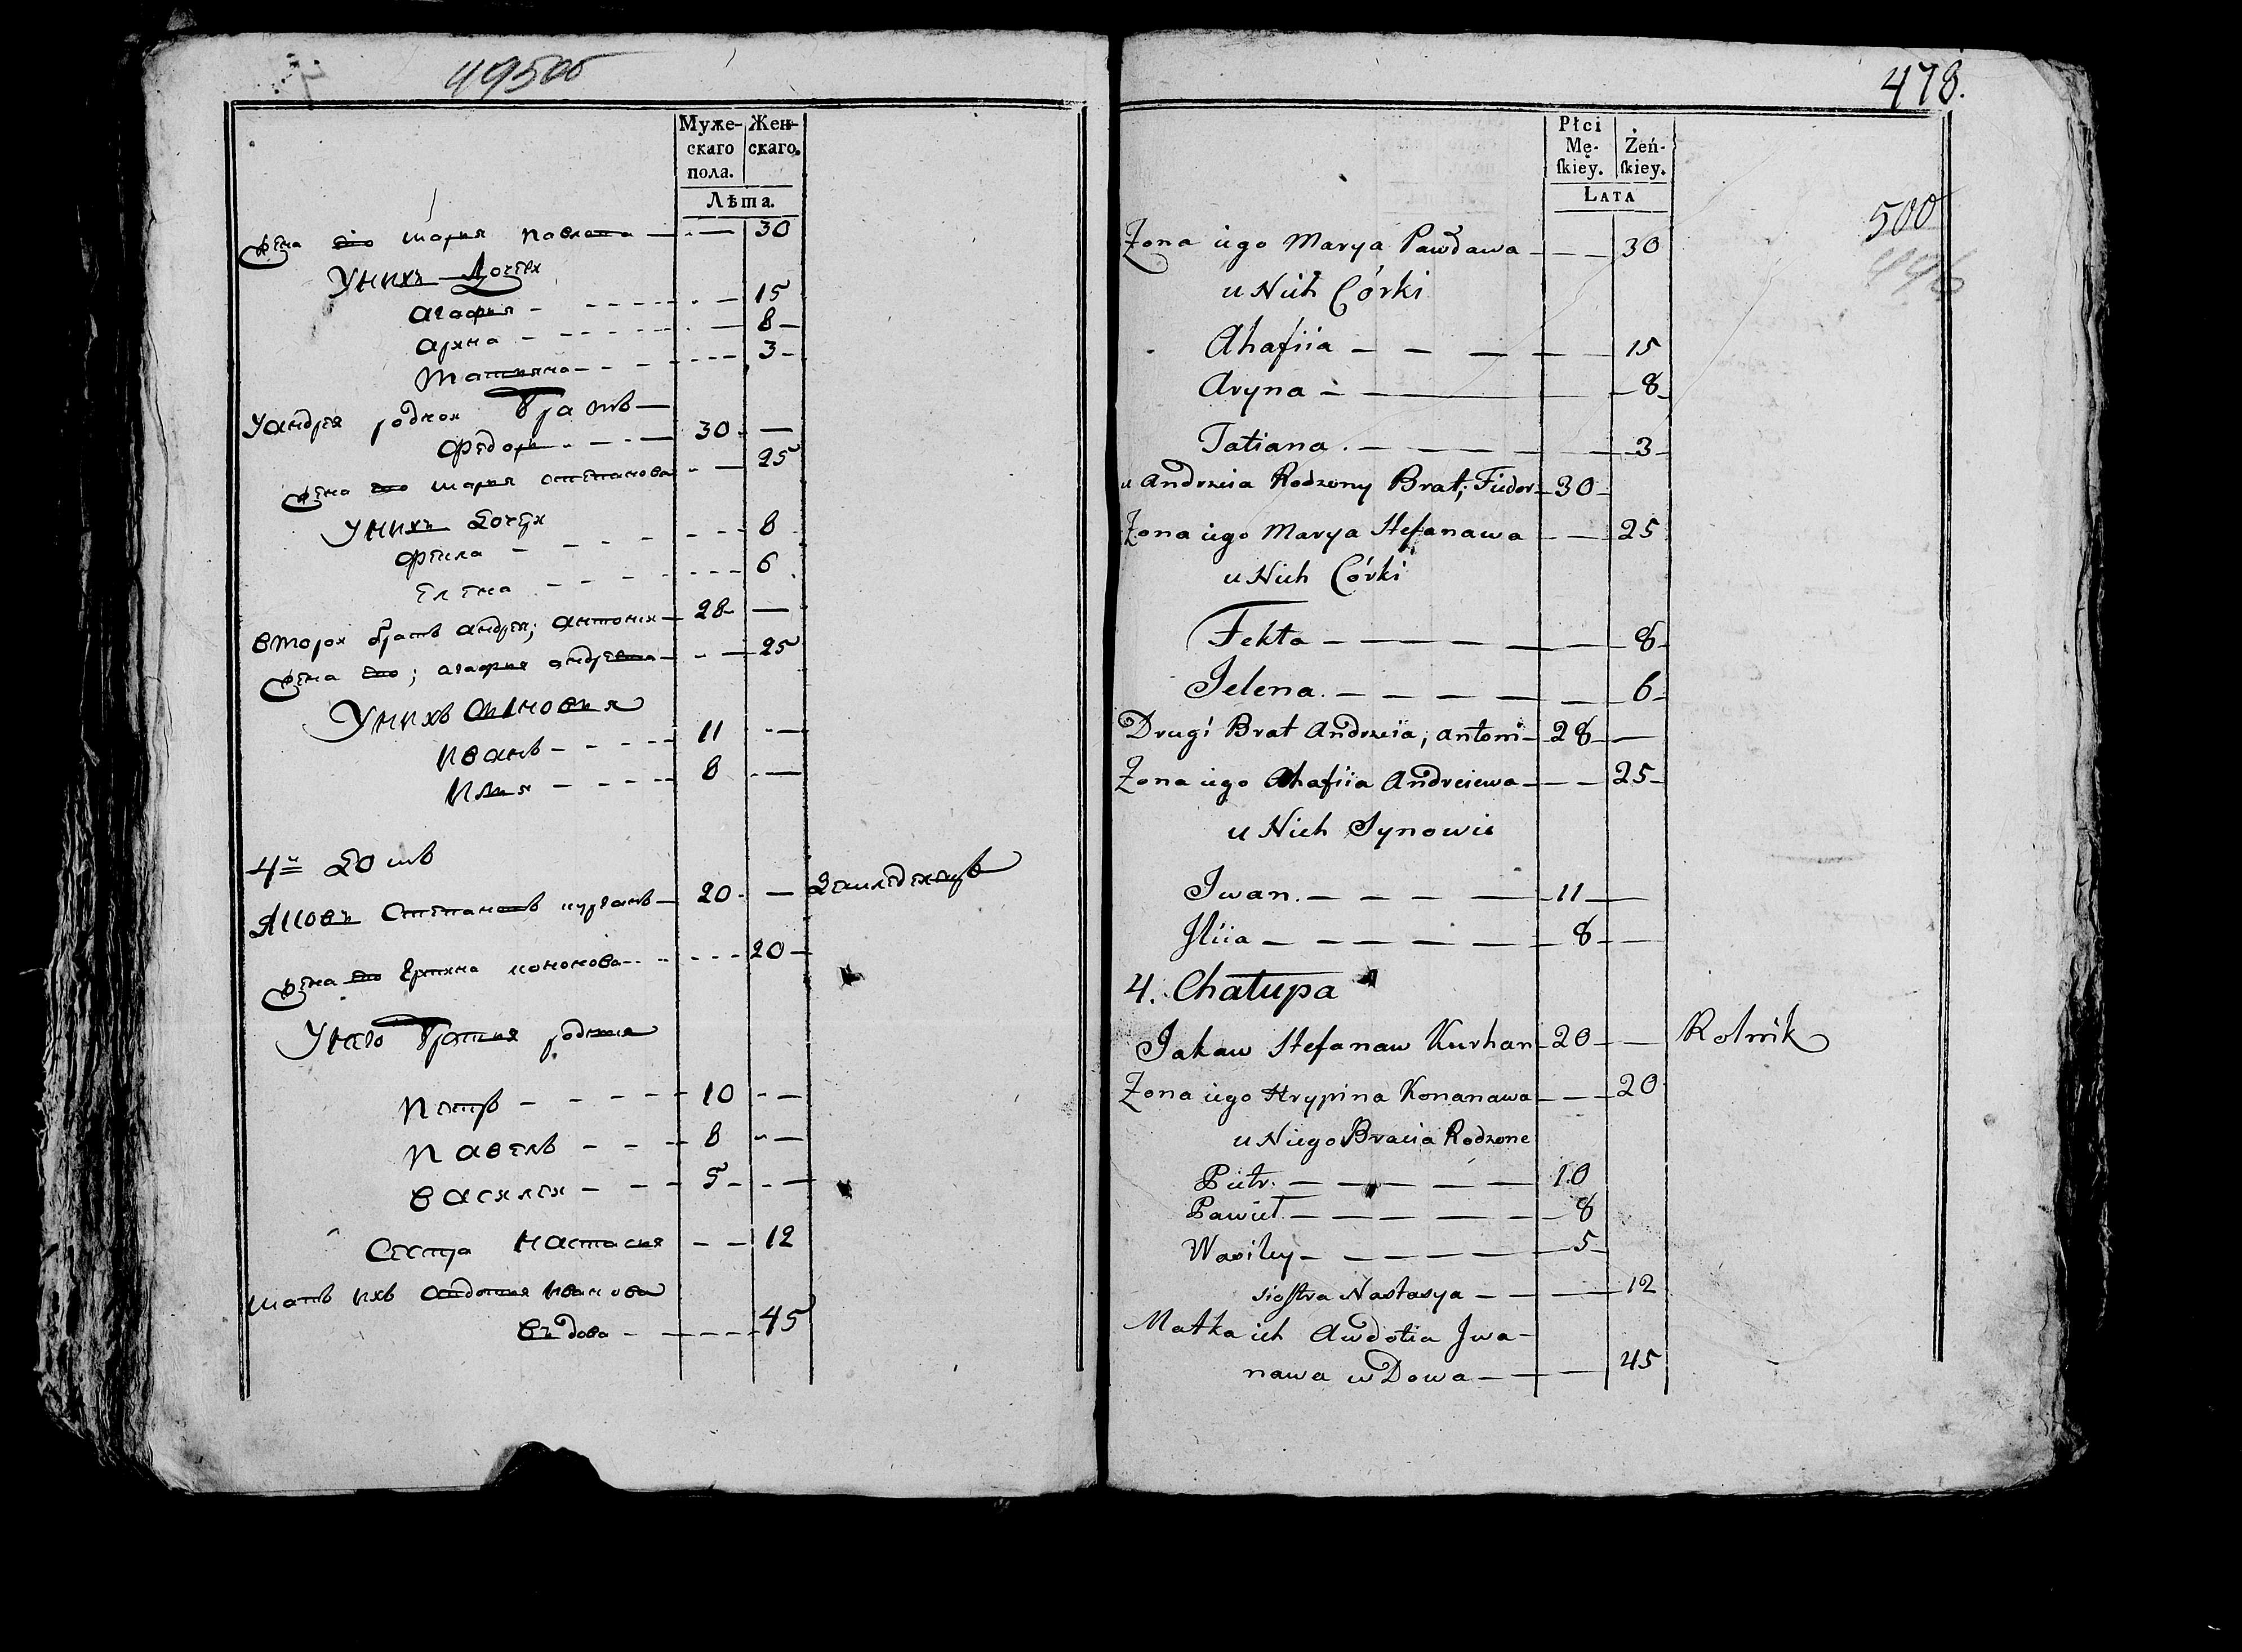 49500
Муже-
скаго
пола.
Жен-
скаго.
Лѣта.
жена его Марья Павлова — 30
У нихъ Дочери
Агафья — 15
Арина — 8
Татьяна — 3
У Андрея родной Братъ —
Федоръ — 30 —
жена его Марья Степанова — 25
У нихъ дочери
Фекла — 8
Елена — 6
Второй братъ Андрея; Антоній — 28 —
жена его; Агафья Андреева — 25
У нихъ Сыновья
Иванъ — 11 —
Илья — 8 —
4й домъ
Яковъ Степановъ Курганъ — 20 — Земледелецъ
жена его Кононова — 20
У него Братья родныя
Петръ — 10 —
Павелъ — 8 —
Василей — 5 —
Сестра Настасья — 12
Мать ихъ Авдотья Иванова
Въдова — 45
478.
Płci
Mę-
ſkiey.
Żeń-
ſkiey.
LATA
500
Zona iego Marya Pawława — 30
u Nich Córki
Ahafiia — 15
Aryna — 8
Tatiana — 3
u Andrzeia Rodzony Brat; Fiedor — 30
Zona iego Marya Stefanawa — 25
u Nich Córki
Fekła — 8
Jelena — 6
Drugi Brat Andrzeia, Antoni — 28 —
Zona iego Ahafiia Andreiewa — 25
u Nich Synowie
Iwan — 11 —
Iliia — 8 —
4. Chałupa
Jakaw Stefanaw Kurhan — 20 — Rolnik
Zona iego Hrypina Konanawa — 20
u Niego Bracia Rodzone
Pietr — 10
Pawieł — 8
Wasiley — 5
sioſtra Nastasya — 12
Matka ich Awdotia Jwa-
nawa wDowa — 45